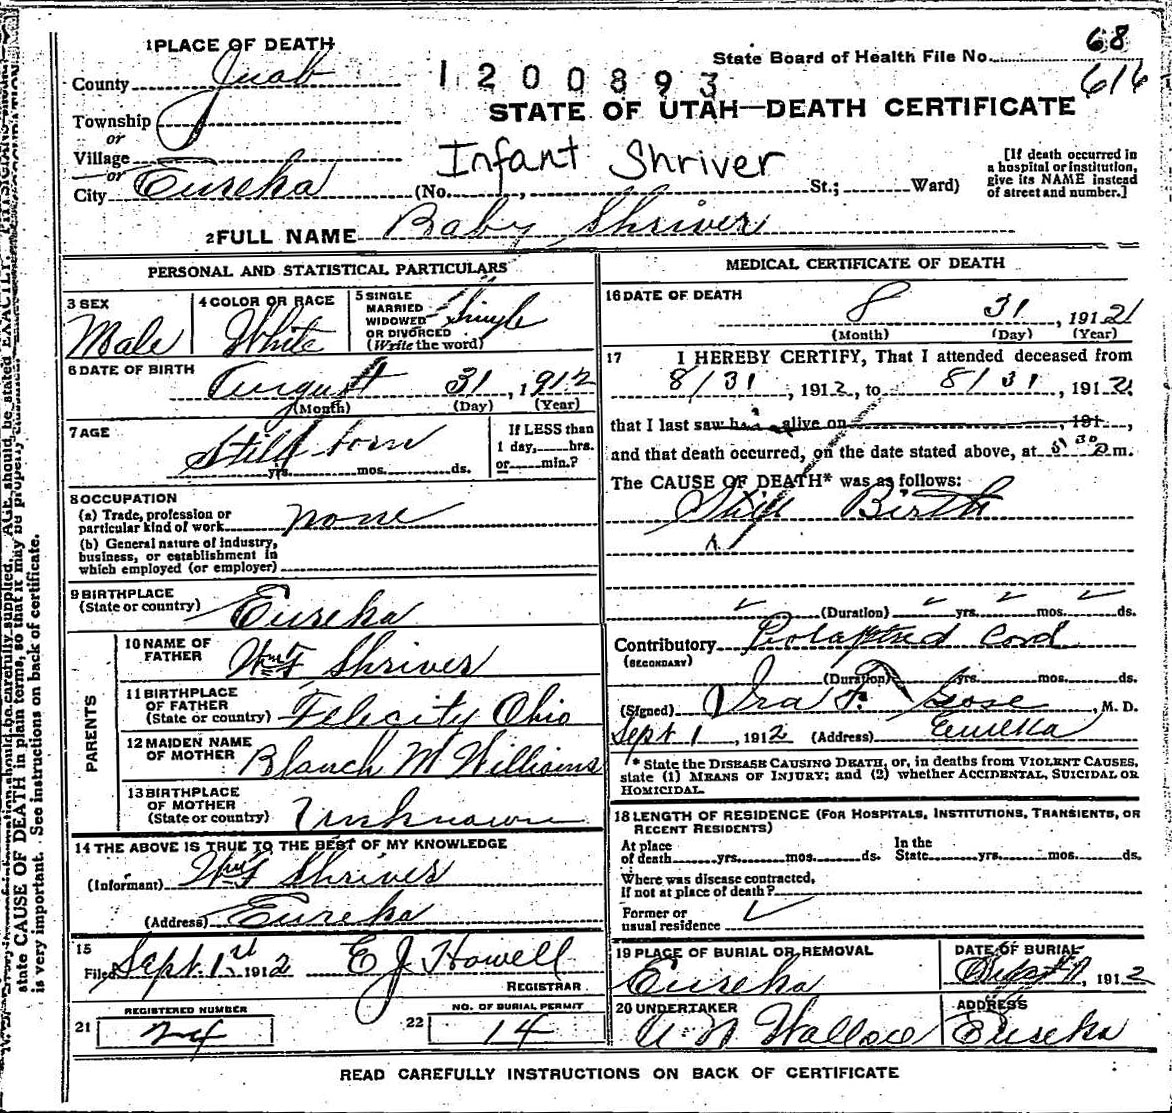 1 PLACE OF DEATH
County Juab
Township
or
Village
or
City Eureka
1200893
State Board of Health File No. 68
616
STATE OF UTAH—DEATH CERTIFICATE
Infant Shriver
(No. , St.; Ward)
[If death occurred in
a hospital or institution,
give its NAME instead
of street and number.]
2 FULL NAME Baby Shriver
PERSONAL AND STATISTICAL PARTICULARS
3 SEX
Male
4 COLOR OR RACE
White
5 SINGLE
MARRIED
WIDOWED
OR DIVORCED
(Write the word)
Single
6 DATE OF BIRTH
August 31, 1912
(Month) (Day) (Year)
7 AGE
Still born
yrs. mos. ds.
If LESS than
1 day, hrs.
or min.?
8 OCCUPATION
(a) Trade, profession or
particular kind of work none
(b) General nature of industry,
business, or establishment in
which employed (or employer)
9 BIRTHPLACE
(State or country) Eureka
PARENTS
10 NAME OF
FATHER Wm F Shriver
11 BIRTHPLACE
OF FATHER
(State or country) Felicity Ohio
12 MAIDEN NAME
OF MOTHER Blanch M Williams
13 BIRTHPLACE
OF MOTHER
(State or country) Unknown
14 THE ABOVE IS TRUE TO THE BEST OF MY KNOWLEDGE
(Informant) Wm F Shriver
(Address) Eureka
15
Filed Sept. 1st 1912 E J Howell
REGISTRAR
21 REGISTERED NUMBER
24
22 NO. OF BURIAL PERMIT
14
MEDICAL CERTIFICATE OF DEATH
16 DATE OF DEATH
8 31, 1912
(Month) (Day) (Year)
17 I HEREBY CERTIFY, That I attended deceased from
8/31, 1912, to 8/31, 1912,
that I last saw h alive on , 191 ,
and that death occurred, on the date stated above, at 5 30 P m.
The CAUSE OF DEATH* was as follows:
Still Birth
(Duration) yrs. mos. ds.
Contributory Prolapsed Cord
(SECONDARY)
(Duration) yrs. mos. ds.
(Signed) Ira F. Gose, M. D.
Sept 1, 1912 (Address) Eureka
* State the DISEASE CAUSING DEATH, or, in deaths from VIOLENT CAUSES,
state (1) MEANS OF INJURY; and (2) whether ACCIDENTAL, SUICIDAL OR
HOMICIDAL.
18 LENGTH OF RESIDENCE (FOR HOSPITALS, INSTITUTIONS, TRANSIENTS, OR
RECENT RESIDENTS)
At place
of death yrs. mos. ds.
In the
State yrs. mos. ds.
Where was disease contracted,
if not at place of death?
Former or
usual residence
19 PLACE OF BURIAL OR REMOVAL
Eureka
DATE OF BURIAL
Sept 1, 1912
20 UNDERTAKER
Wallace
ADDRESS
Eureka
READ CAREFULLY INSTRUCTIONS ON BACK OF CERTIFICATE
state CAUSE OF DEATH in plain terms, so that it may be properly
is very important. See instructions on back of certificate.